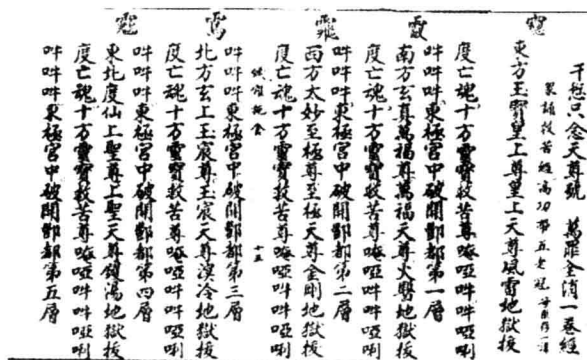 千愆只念天尊號 萬罪全消一卷經
眾誦救苦經高功帶五老冠
東方玉寶皇上尊皇上天尊風雷地獄拔
度亡魂十方靈寶救苦尊唵啞吽吽啞唎
吽吽吽東極宮中破開酆都第一層
南方玄真萬福尊萬福天尊火翳地獄拔
度亡魂十方靈寶救苦尊唵啞吽吽啞唎
吽吽吽東極宮中破開酆都第二層
西方太妙至極尊至極天尊金剛地獄拔
度亡魂十方靈寶救苦尊唵啞吽吽啞唎
施食 十五
吽吽吽東極宮中破開酆都第三層
北方玄上玉宸尊玉宸天尊溟冷地獄拔
度亡魂十方靈寶救苦尊唵啞吽吽啞唎
吽吽吽東極宮中破開酆都第四層
東北度仙上聖尊上聖天尊鑊湯地獄拔
度亡魂十方靈寶救苦尊唵啞吽吽啞唎
吽吽吽東極宮中破開酆都第五層